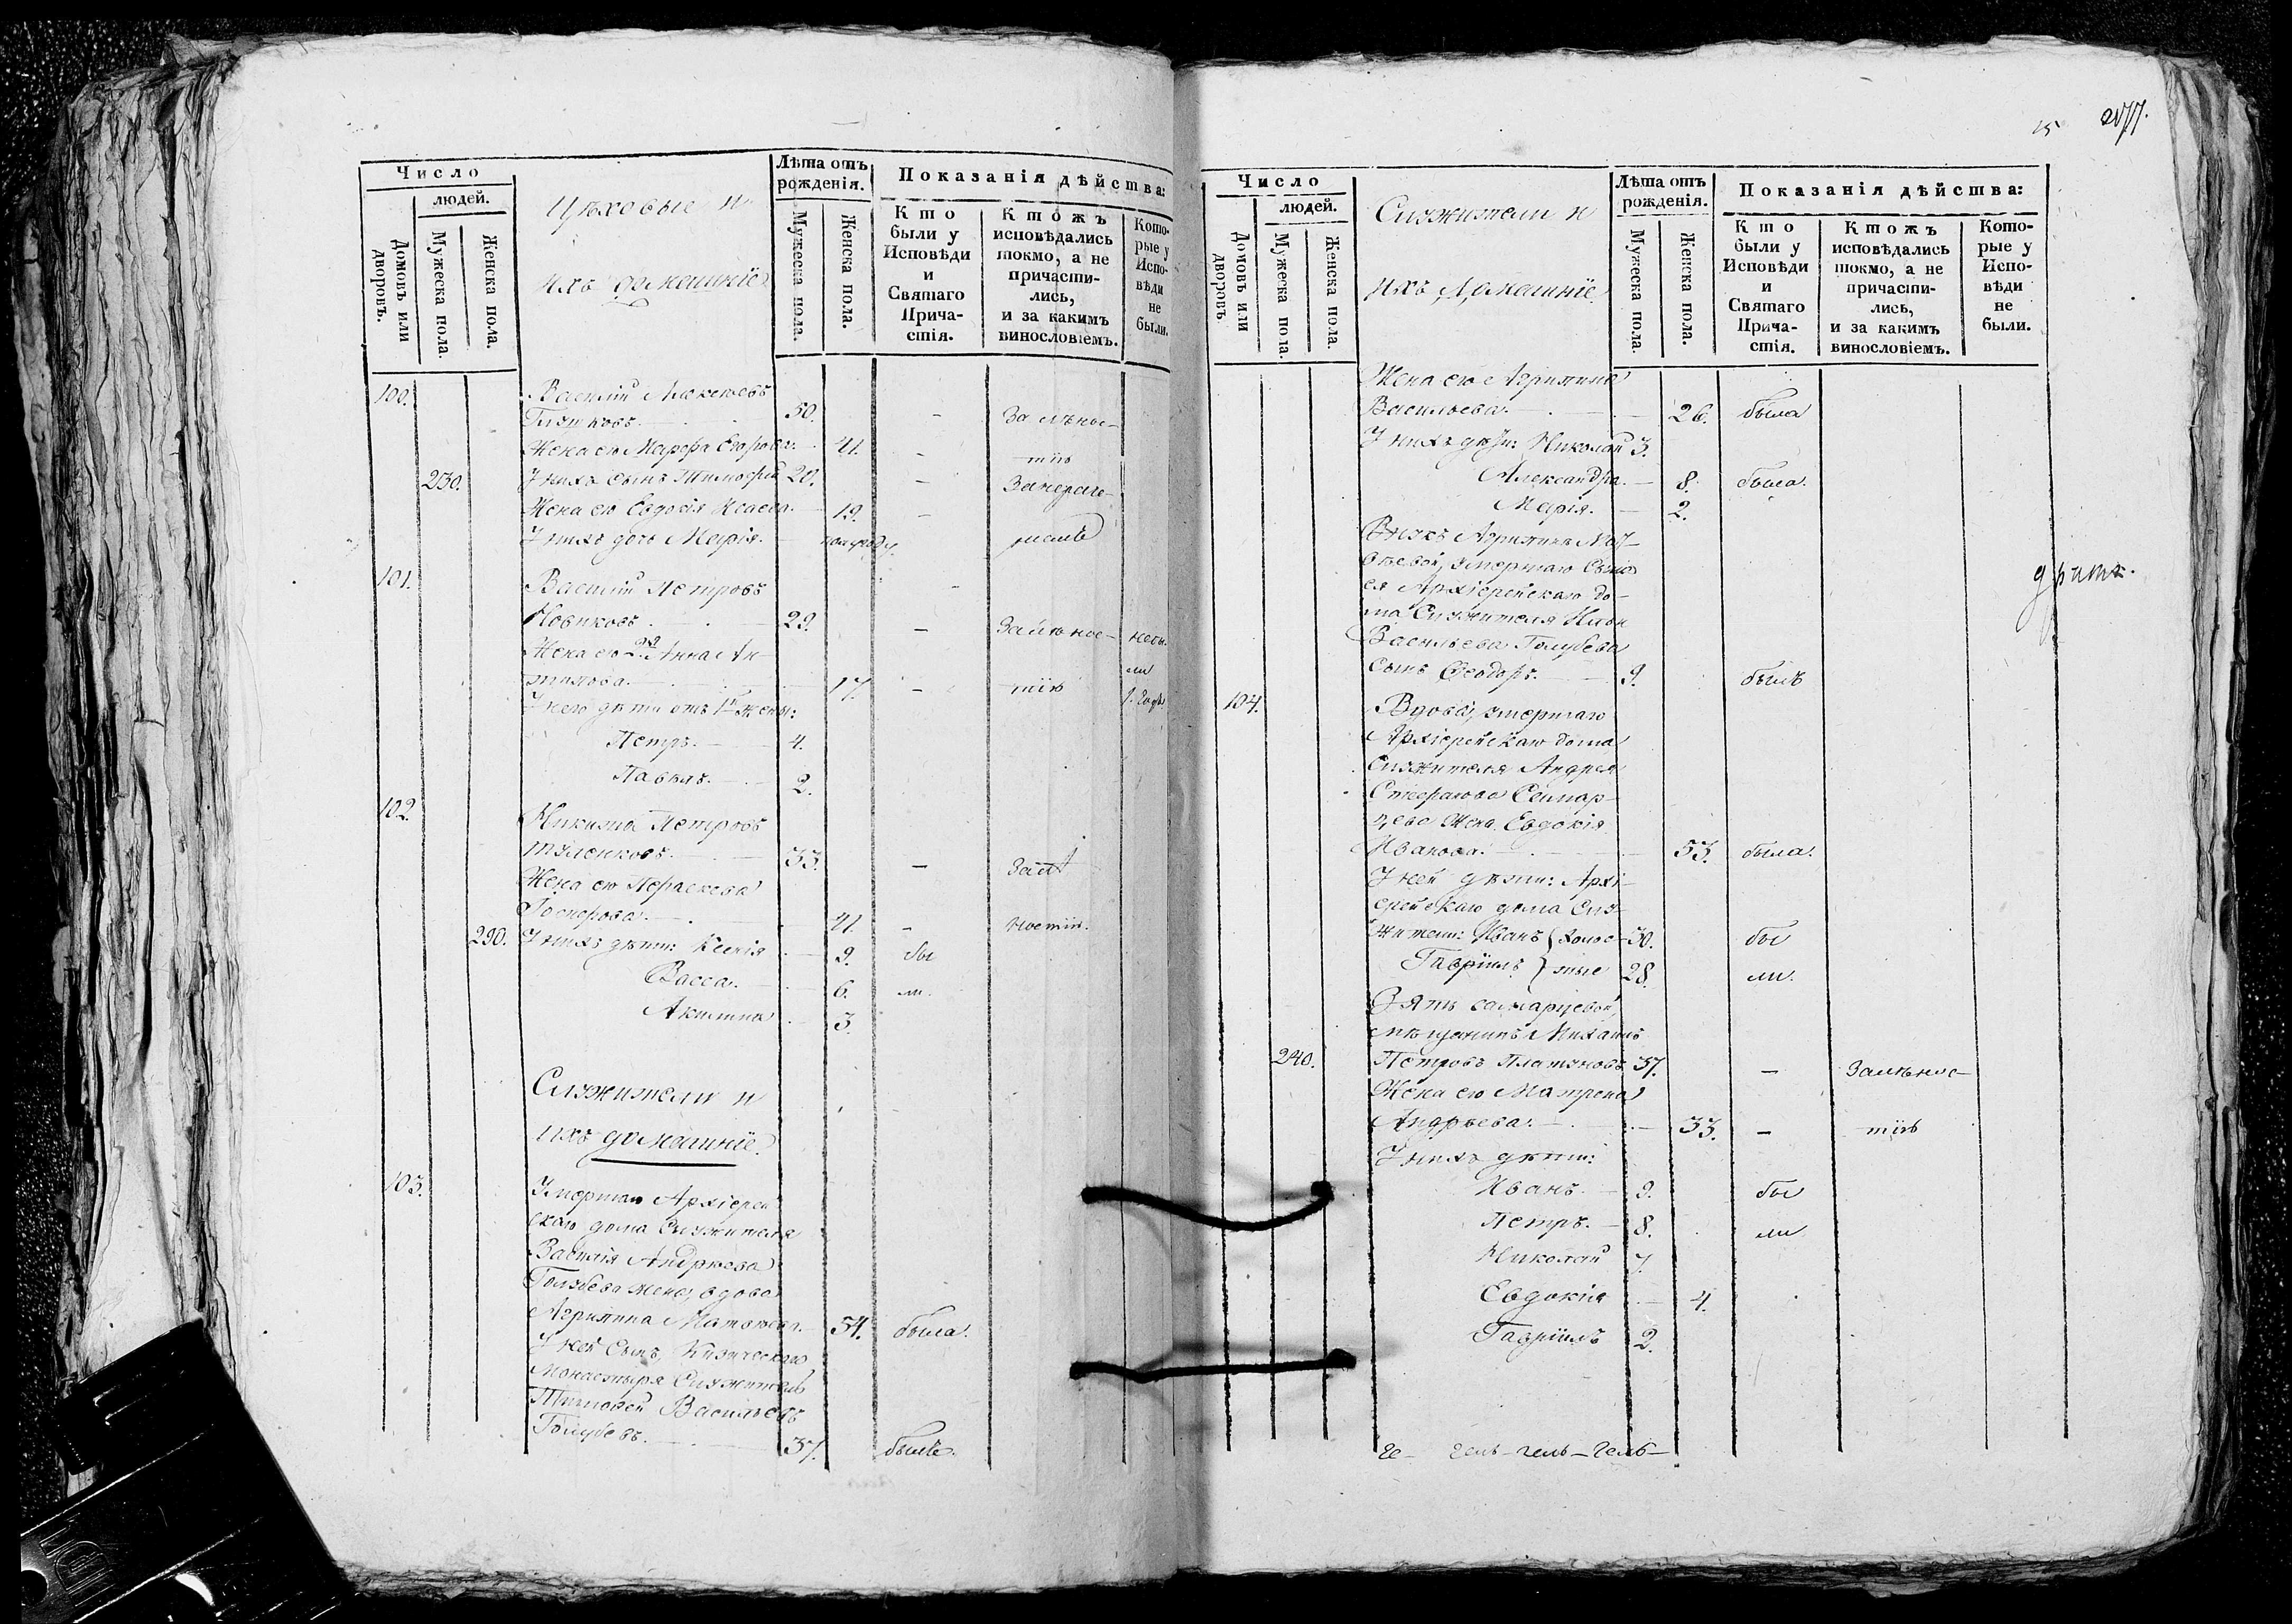 Число
людей.
Домовъ или дворовъ.
Мужеска пола.
Женска пола.
Цѣховые и
ихъ домашніе
Лѣта отъ рожденія.
Мужеска пола.
Женска пола.
Показанія дѣйства:
Кто были у Исповѣди и Святаго Причастія.
Ктожъ исповѣдались токмо, а не причастились, и за какимъ винословіемъ.
Которые у Исповѣди не были.
100. Василій Алексѣевъ
50. - За лѣнос-
Жена его Марфа Егорова. 41. - тію
230. У нихъ сынъ Тимофей 20. -
Жена его Евдокія Исаева. 19. -
У нихъ дочь Марія. полугоду
101. Василій Петровъ
Новиковъ. 29. - За лѣнос- небы-
Жена его 2я Анна Ан-
17. - тію 1. годъ
У него дѣти отъ 1й жены:
Петръ. 4.
Павелъ. 2.
102. Никита Петровъ
33. - За лѣ
Жена его Параскева
41. - ностію.
290. У нихъ дѣти: Ксенія 9. бы
Васса. 6. ли.
Акилина 3.
Служители и
ихъ домашніе.
103. Умершаго Архіерей
скаго дома Служителя
Василія Андреева
Голубева жена, вдова
Агрипина Матвѣева. 54. была.
У ней сынъ, Кизическаго
Монастыря Служитель
Тимофей Васильевъ
Голубевъ. 37. былъ.
15 277.
Число
людей.
Домовъ или дворовъ.
Мужеска пола.
Женска пола.
Служители и
ихъ Домашніе
Лѣта отъ рожденія.
Мужеска пола.
Женска пола.
Показанія дѣйства:
Кто были у Исповѣди и Святаго Причастія.
Ктожъ исповѣдались токмо, а не причастились, и за какимъ винословіемъ.
Которые у Исповѣди не были.
Жена его Агрипина
Васильева. 26. была
У нихъ дѣти: Николай 3.
Александра. 8. была.
Марія. 2.
Внукъ Агрипины Мат-
вѣевой, умершаго Сына
ея Архіерейскаго до-
ма Служителя Ивана
Васильева Голубева
сынъ Ѳеодоръ. 9. былъ
104. Вдова, умершаго
Архіерейскаго дома
Служителя Андрея
Стефанова Самар-
цева Жена Евдокія
Иванова. 53. была.
У ней дѣти: Архі-
ерейскаго дома Слу-
жители: Иванъ } холос- 30. бы
Гавріилъ } тые 28. ли.
Зять Самарцевой,
мѣщанинъ Михаилъ
240. Петровъ Платуновъ 37. - За лѣнос-
Жена его Матрена
Андреева. 33. - тію
У нихъ дѣти:
Иванъ. 9. бы
Петръ. 8. ли
Николай 7.
Евдокія 4.
Гавріилъ 2.